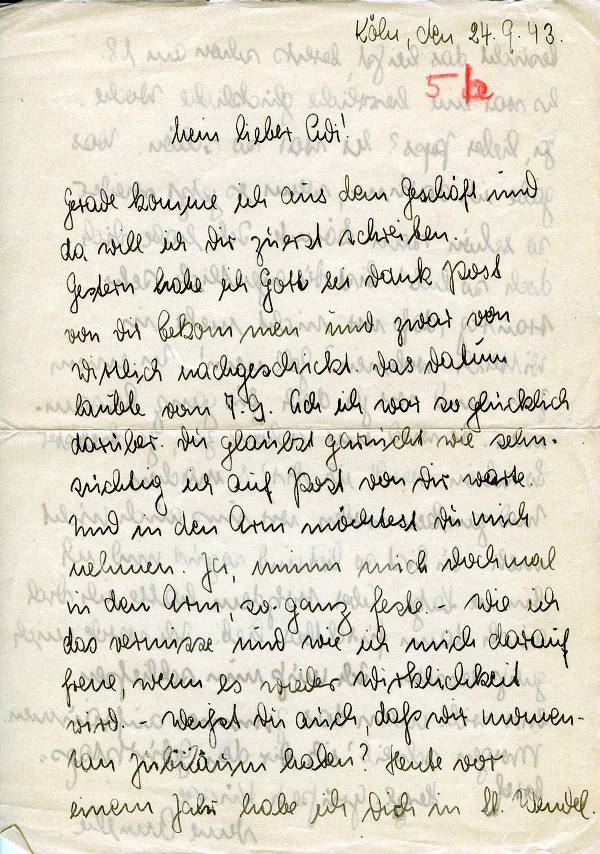 Köln, den 24.9.43.
5
Mein lieber Adi!
Gerade komme ich aus dem Geschäft und
da will ich dir zuerst schreiben.
Gestern habe ich Gott sei dank Post
von dir bekommen und zwar von
Wittlich nachgeschickt. Das datum
lautete vom 7.9. Ach ich war so glücklich
darüber. Du glaubst garnicht wie sehn-
süchtig ich auf Post von dir warte.
Und in den Arm möchtest du mich
nehmen. Ja, nimm mich doch mal
in den Arm, so ganz feste. - Wie ich
das vermisse und wie ich mich darauf
freue, wenn es wieder Wirklichkeit
wird. - Weißt du auch, daß wir momen-
tan Jubiläum haben? Heute vor
einem Jahr habe ich dich in St. Wendel.